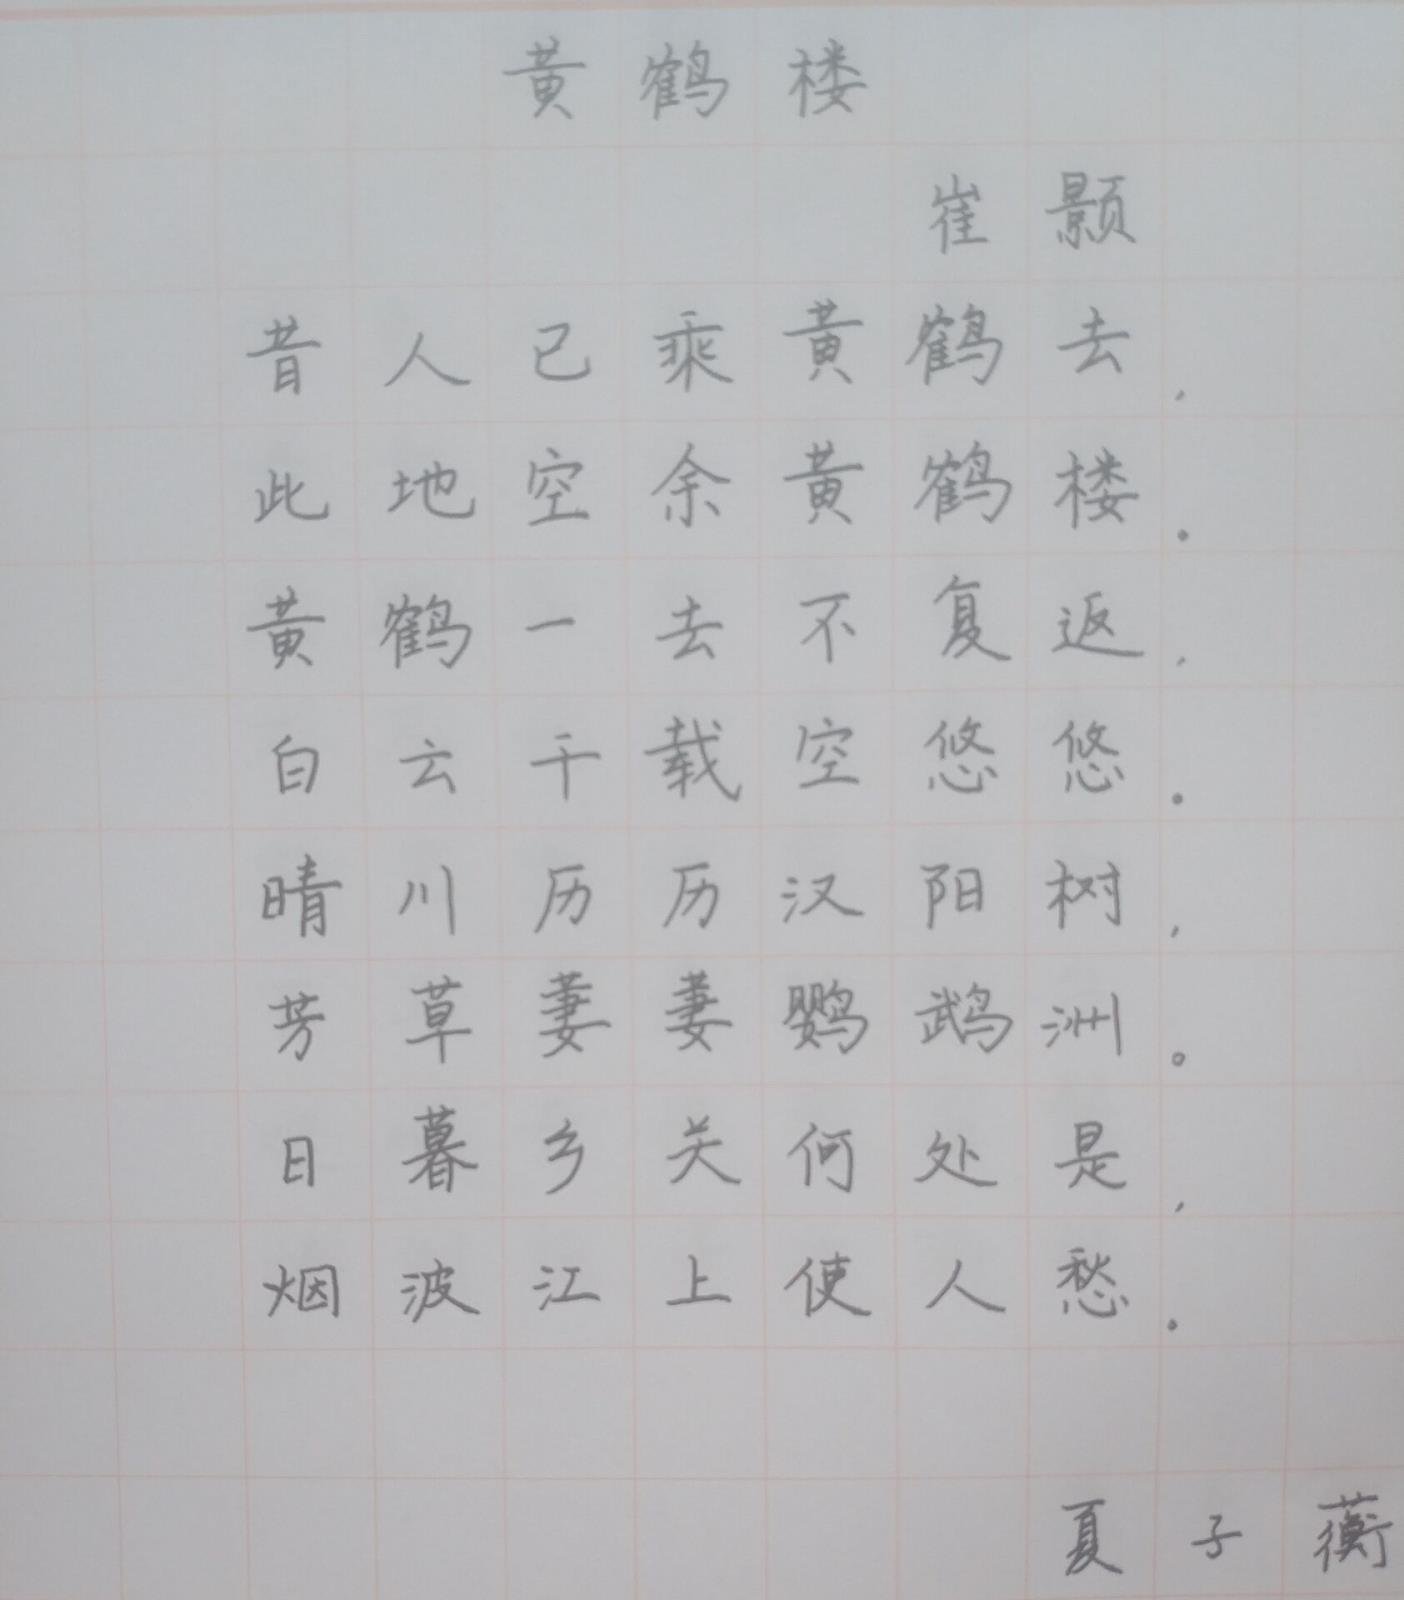 黄鹤楼
崔颢
昔人已乘黄鹤去，
此地空余黄鹤楼。
黄鹤一去不复返，
白云千载空悠悠。
晴川历历汉阳树，
芳草萋萋鹦鹉洲。
日暮乡关何处是，
烟波江上使人愁。
夏子蘅